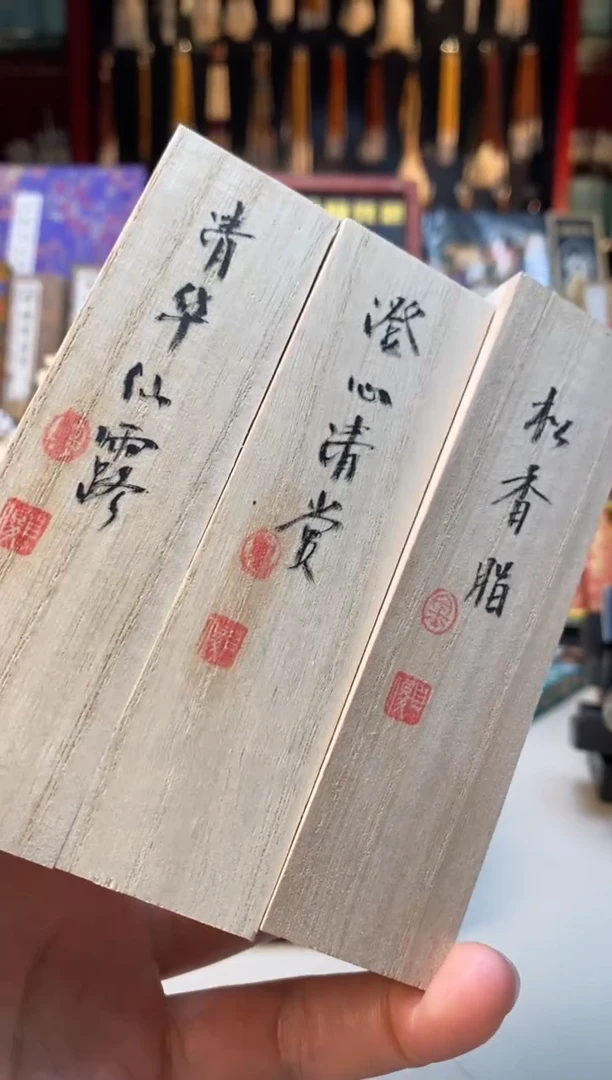 清华仙露
澄心清赏
松香脂